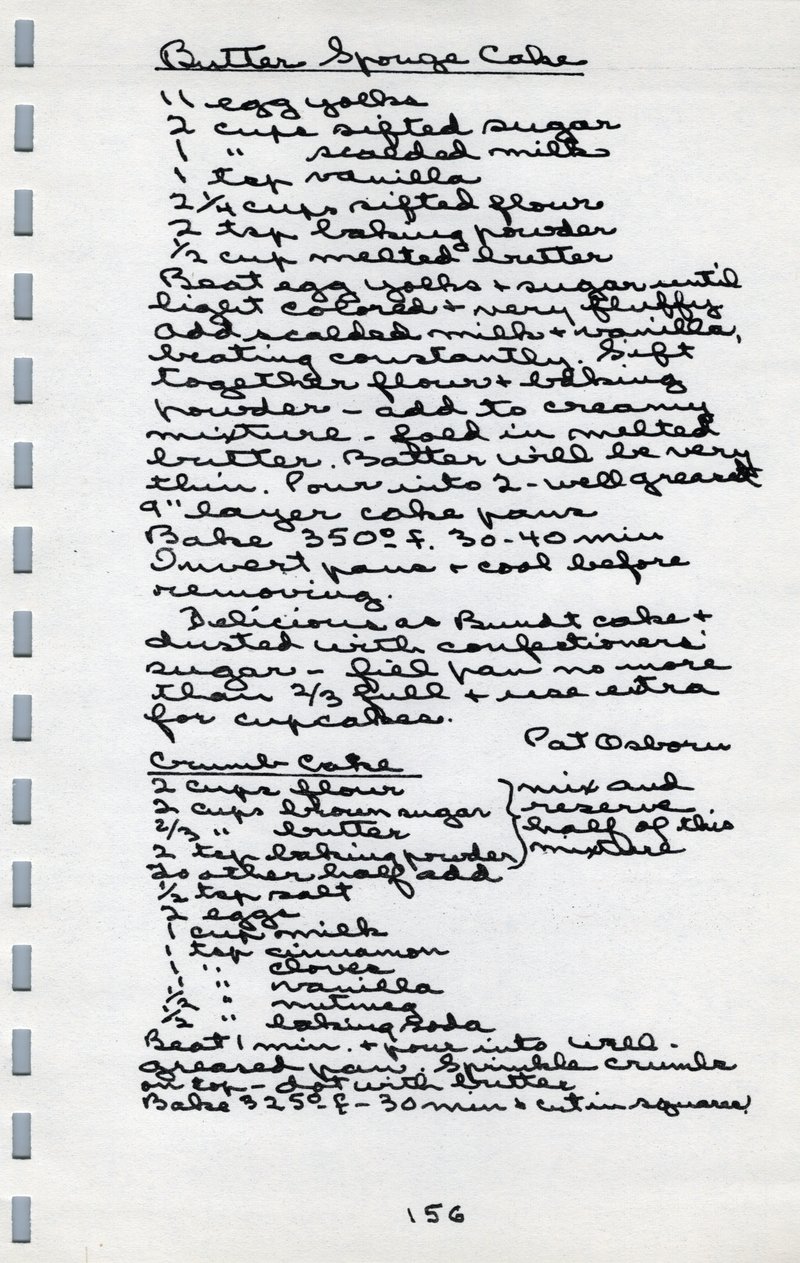 Butter Sponge Cake
11 egg yolks
2 cups sifted sugar
1 " scalded milk
1 tsp vanilla
2 1/4 cups sifted flour
2 tsp baking powder
1/2 cup melted butter
Beat egg yolks + sugar until
light colored + very fluffy
Add scalded milk + vanilla,
beating constantly. Sift
together flour + baking
powder - add to creamy
mixture - fold in melted
butter. Batter will be very
thin. Pour into 2 - well greased
9" layer cake pans
Bake 350° f. 30-40 min
Invert pans + cool before
removing.
Delicious as Bundt cake +
dusted with confectioners'
sugar - fill pan no more
than 2/3 full + use extra
for cupcakes.
Pat Osborn
Crumb Cake
2 cups flour } mix and
2 cups brown sugar } reserve
2/3 " butter } half of this
2 tsp baking powder } mixture
To other half add
1/2 tsp salt
2 eggs
1 cup milk
1 tsp cinnamon
1 " cloves
1 " vanilla
1/2 " nutmeg
1/2 " baking soda
Beat 1 min. + pour into well-
greased pan. Sprinkle crumbs
on top - dot with butter
Bake 325° f - 30 min + cut in squares.
156